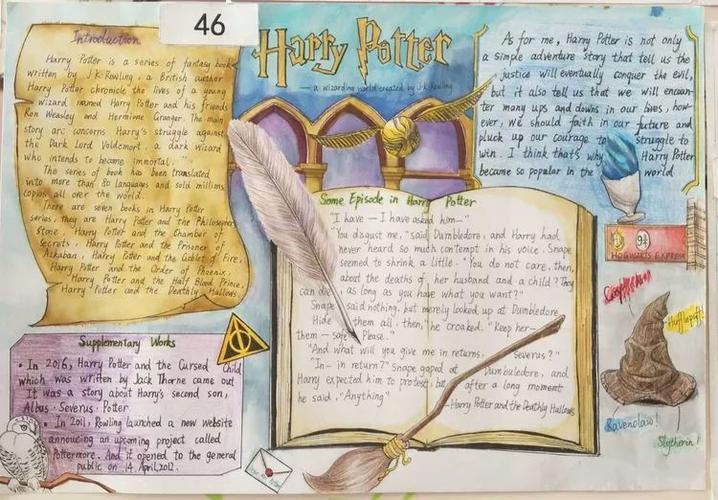 46
Harry Potter
— a wizarding world created by J.K. Rowling
Introduction
Harry Potter is a series of fantasy book
written by J.K. Rowling, a British author
Harry Potter chronicle the lives of a young
wizard named Harry Potter and his friends
Ron Weasley and Hermione Granger. The main
story arc concerns Harry's struggle against
the Dark Lord Voldemort, a dark wizard
who intends to become immortal.
The series of book has been translated
into more than 80 languages and sold millions
copies all over the world.
There are seven books in Harry Potter
series, they are Harry Potter and the Philosopher
Stone, Harry Potter and the Chamber of
Secrets, Harry Potter and the Prisoner of
Azkaban, Harry Potter and the Goblet of Fire,
Harry Potter and the Order of Phoenix,
Harry Potter and the Half Blood Prince,
Harry Potter and the Deathly Hallows
As for me, Harry Potter is not only
a simple adventure story that tell us the
justice will eventually conquer the evil,
but it also tell us that we will encoun-
ter many ups and downs in our lives, how-
ever, we should faith in our future and
pluck up our courage to struggle to
win. I think that's why Harry Potter
became so popular in the world
Some Episode in Harry Potter
"I have — I have asked him—"
"You disgust me," said Dumbledore, and Harry had
never heard so much contempt in his voice. Snape
seemed to shrink a little. "You do not care, then,
about the deaths of her husband and a child? They
can die as long as you have what you want?"
Snape said nothing, but merely looked up at Dumbledore
Hide them all, then," he croaked. "Keep her—
them — safe. Please."
"And what will you give me in returns, Severus?"
"In— in return?" Snape gaped at Dumbuledore, and
Harry expected him to protest, but after a long moment
he said, "Anything"
—Harry Potter and the Deathly Hallows
9¾
HOGWARTS EXPRESS
Gryffindor
Hufflepuff!
Ravenclaw!
Slytherin!
Supplementary Works
• In 2016, Harry Potter and the Cursed Child
which was written by Jack Thorne came out
It was a story about Harry's second son,
Albus·Severus·Potter
• In 2011, Rowling launched a new website
annoucing an upcoming project called
Pottermore. And it opened to the general
public on 14 April, 2012.